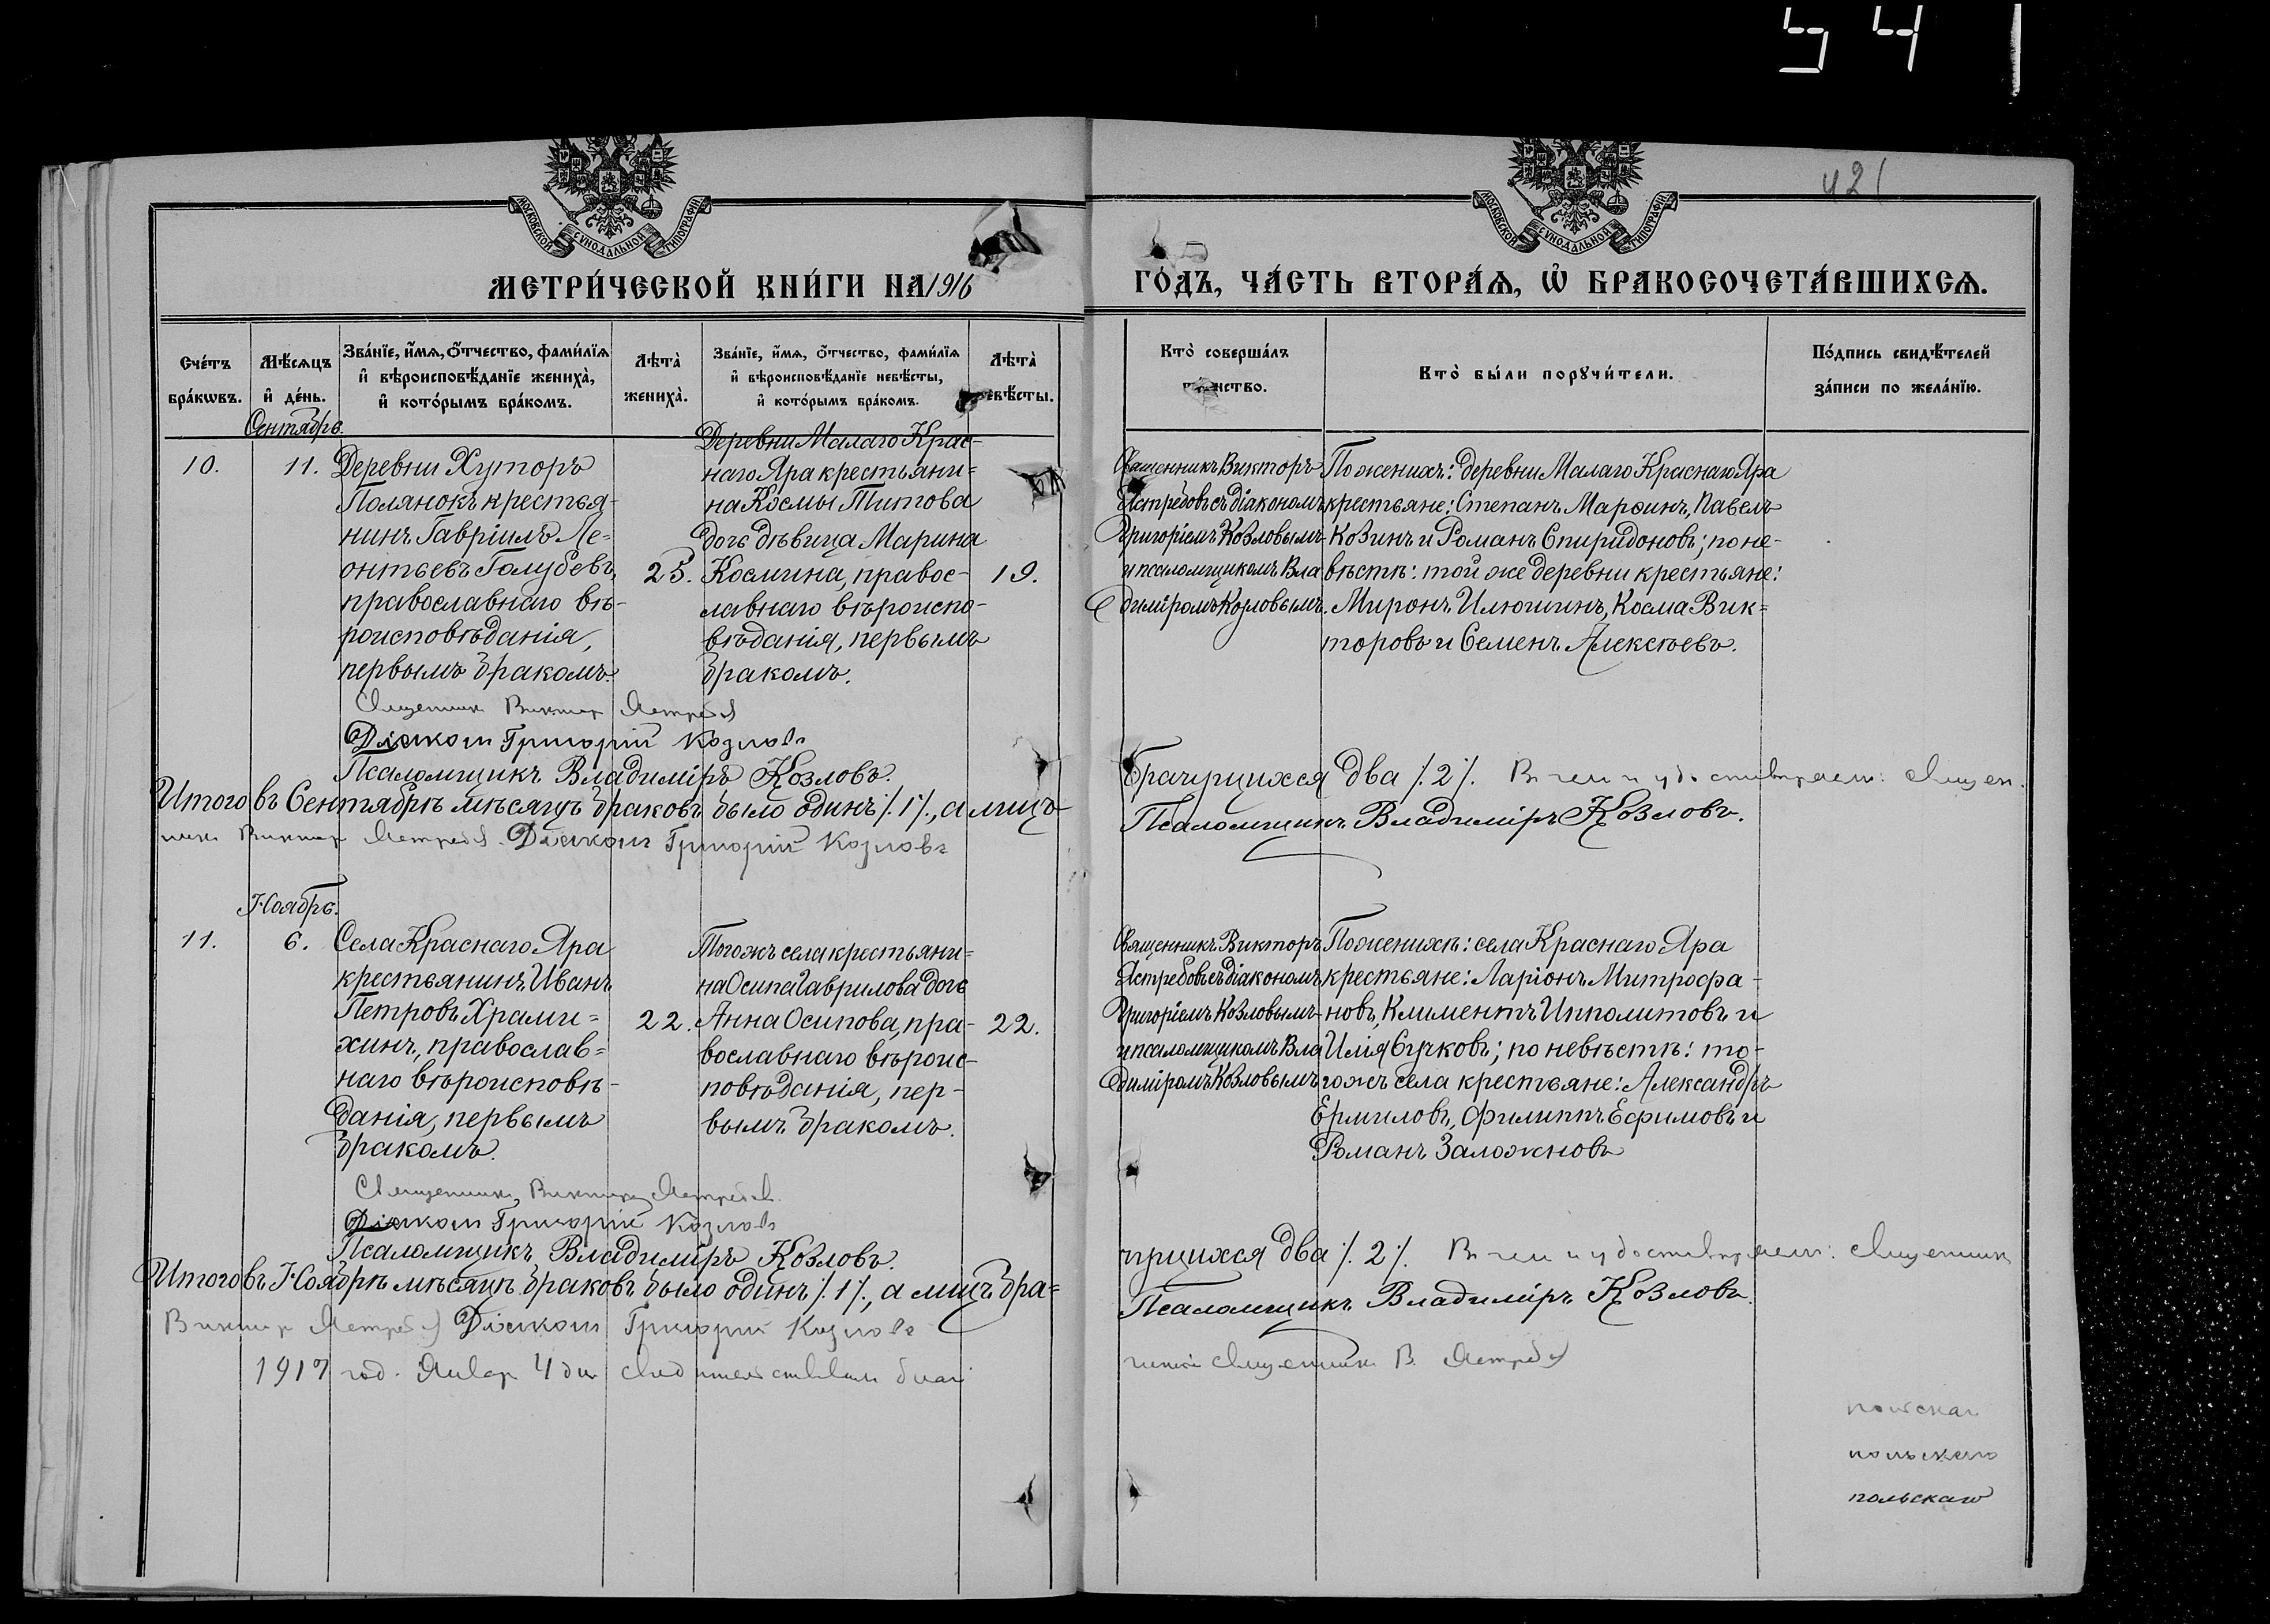 541
421
МОСКОВСКОЙ СУНОДАЛЬНОЙ ТИПОГРАФІИ
МОСКОВСКОЙ СУНОДАЛЬНОЙ ТИПОГРАФІИ
МЕТРИ́ЧЕСКОЙ КНИ́ГИ НА 1916 ГО́ДЪ, ЧА́СТЬ ВТОРА́Ѧ, Ѡ҆ БРАКОСОЧЕТА́ВШИХСѦ.
Сче́тъ
бра́кѡвъ.
Мѣ́сѧцъ
и҆ де́нь.
Зва́нїе, и҆́мѧ, ѻ҆́тчество, фами́лїѧ
и҆ вѣроисповѣ́данїе жениха̀,
и҆ кото́рымъ бра́комъ.
Лѣта̀
жениха̀.
Зва́нїе, и҆́мѧ, ѻ҆́тчество, фами́лїѧ
и҆ вѣроисповѣ́данїе невѣ́сты,
и҆ кото́рымъ бра́комъ.
Лѣта̀
невѣ́сты.
Кто̀ соверша́лъ
таинство.
Кто̀ бы́ли порꙋчи́тели.
По́дпись свидѣ́телей
за́писи по жела́нїю.
Сентябрь.
10.
11.
Деревни Хуторъ
Полянокъ крестья-
нинъ Гавріилъ Ле=
онтьевъ Голубевъ,
православнаго вѣ-
роисповѣданія,
первымъ бракомъ.
25.
Деревни Малаго Крас-
наго Яра крестьяни=
на Космы Титова
дочь дѣвица Марина
Космина, правос-
лавнаго вѣроиспо-
вѣданія, первымъ
бракомъ.
19.
Священникъ Викторъ
Ястребовъ съ діакономъ
Григоріемъ Козловымъ
и псаломщикомъ Вла
диміромъ Козловымъ.
По женихѣ: деревни Малаго Краснаго Яра
крестьяне: Степанъ Марѳинъ, Павелъ
Козинъ и Романъ Спиридоновъ; по не-
вѣстѣ: той же деревни крестьяне:
Миронъ Илюшинъ, Косма Вик=
торовъ и Семенъ Алексѣевъ.
Священник Виктор Ястребов
Діякон Григорій Козловъ
Псаломщикъ Владиміръ Козловъ.
Итого въ Сентябрѣ мѣсяцѣ браковъ было одинъ /.1/., а лицъ брачущихся два /.2/. В чем и удостоверяем: священ-
ник Виктор Ястребов. Діякон Григорій Козловъ Псаломщикъ Владиміръ Козловъ.
Ноябрь.
11.
6.
Села Краснаго Яра
крестьянинъ Иванъ
Петровъ Храми=
хинъ, православ=
наго вѣроисповѣ-
данія, первымъ
бракомъ.
22.
Тогожъ села крестьяни-
на Осипа Гаврилова дочь
Анна Осипова, пра-
вославнаго вѣроис-
повѣданія, пер-
вымъ бракомъ.
22.
Священникъ Викторъ
Ястребовъ съ діакономъ
Григоріемъ Козловымъ
и псаломщикомъ Вла
диміромъ Козловымъ
По женихѣ: села Краснаго Яра
крестьяне: Ларіонъ Митрофа-
новъ, Климентъ Ипполитовъ и
Илія Сучковъ; по невѣстѣ: то-
гожъ села крестьяне: Александръ
Ермиловъ, Филиппъ Ефимовъ и
Романъ Заложновъ
Священник Виктор Ястребов.
Діякон Григорій Козловъ
Псаломщикъ Владиміръ Козловъ.
Итого въ Ноябрѣ мѣсяцѣ браковъ было одинъ /.1/., а лицъ бра=чущихся два /.2/. В чем и удостоверяем: священник
Виктор Ястребов Діякон Григорій Козловъ Псаломщикъ Владиміръ Козловъ.
1917 год. Январ 4 дня свидетельствовал благочинный священник В. Ястребов
польскаго
польскаго